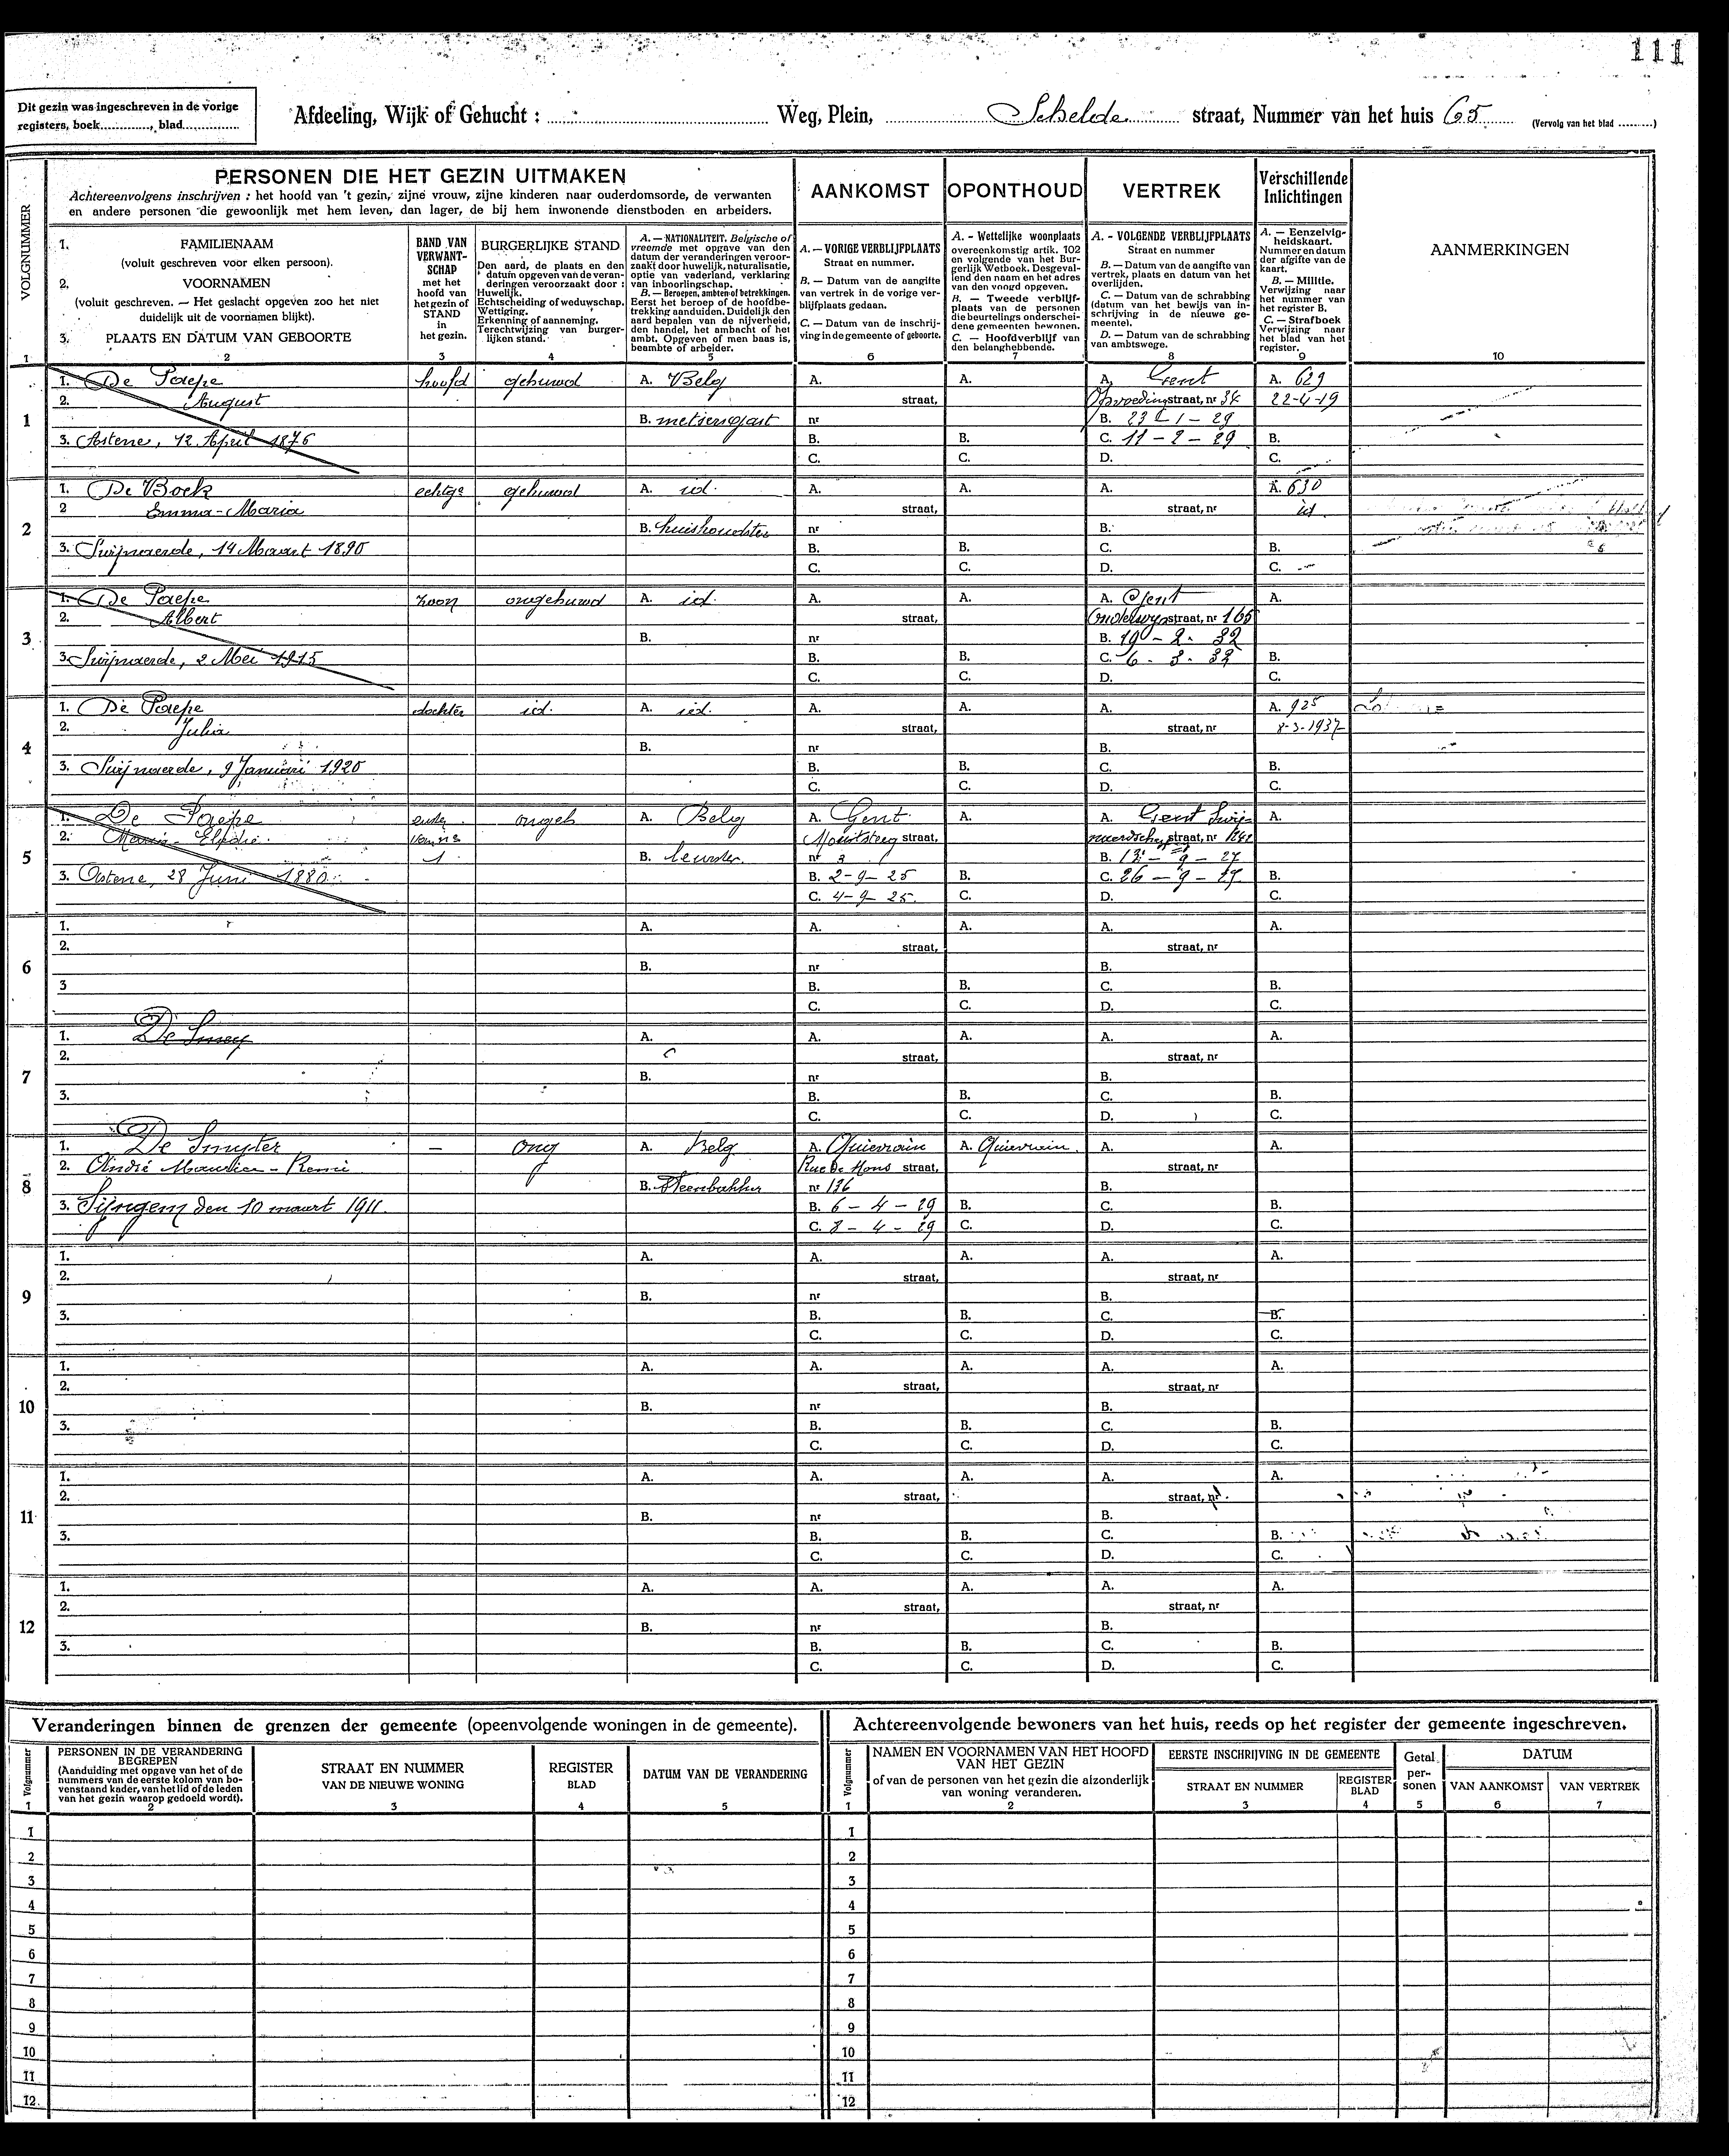 111
Dit gezin was ingeschreven in de vorige
registers, boek............., blad..............
Afdeeling, Wijk of Gehucht : .......... Weg, Plein, .......... Schelde straat, Nummer van het huis 65 (Vervolg van het blad ..........)
VOLGNUMMER
1
PERSONEN DIE HET GEZIN UITMAKEN
Achtereenvolgens inschrijven : het hoofd van 't gezin, zijne vrouw, zijne kinderen naar ouderdomsorde, de verwanten
en andere personen die gewoonlijk met hem leven, dan lager, de bij hem inwonende dienstboden en arbeiders.
1. FAMILIENAAM
(voluit geschreven voor elken persoon).
2. VOORNAMEN
(voluit geschreven. — Het geslacht opgeven zoo het niet
duidelijk uit de voornamen blijkt).
3. PLAATS EN DATUM VAN GEBOORTE
2
BAND VAN
VERWANT-
SCHAP
met het
hoofd van
het gezin of
STAND
in
het gezin.
3
BURGERLIJKE STAND
Den aard, de plaats en den
datum opgeven van de veran-
deringen veroorzaakt door :
Huwelijk.
Echtscheiding of weduwschap.
Wettiging.
Erkenning of aanneming.
Terechtwijzing van burger-
lijken stand.
4
A. — NATIONALITEIT. Belgische of
vreemde met opgave van den
datum der veranderingen veroor-
zaakt door huwelijk, naturalisatie,
optie van vaderland, verklaring
van inboorlingschap.
B. — Beroepen, ambten of betrekkingen.
Eerst het beroep of de hoofdbe-
trekking aanduiden. Duidelijk den
aard bepalen van de nijverheid,
den handel, het ambacht of het
ambt. Opgeven of men baas is,
beambte of arbeider.
5
AANKOMST
A. — VORIGE VERBLIJFPLAATS
Straat en nummer.
B. — Datum van de aangifte
van vertrek in de vorige ver-
blijfplaats gedaan.
C. — Datum van de inschrij-
ving in de gemeente of geboorte.
6
OPONTHOUD
A. - Wettelijke woonplaats
overeenkomstig artik. 102
en volgende van het Bur-
gerlijk Wetboek. Desgeval-
lend den naam en het adres
van den voogd opgeven.
B. — Tweede verblijf-
plaats van de personen
die beurtelings onderschei-
dene gemeenten bewonen.
C. — Hoofdverblijf van
den belanghebbende.
7
VERTREK
A. - VOLGENDE VERBLIJFPLAATS
Straat en nummer
B. — Datum van de aangifte van
vertrek, plaats en datum van het
overlijden.
C. — Datum van de schrabbing
(datum van het bewijs van in-
schrijving in de nieuwe ge-
meente).
D. — Datum van de schrabbing
van ambtswege.
8
Verschillende
Inlichtingen
A. — Eenzelvig-
heidskaart.
Nummer en datum
der afgifte van de
kaart.
B. — Militie.
Verwijzing naar
het nummer van
het register B.
C. — Strafboek
Verwijzing naar
het blad van het
register.
9
AANMERKINGEN
10
1
1. De Paepe hoofd gehuwd A. Belg A. A. A. Gent A. 629
2. August straat, straat, nr 34 22-4-19
B. metsersgast nr B. 23-1-29
3. Astene, 12 April 1876 B. B. C. 11-2-29 B.
C. C. D. C.
2
1. De Bock echtge gehuwd A. id. A. A. A. A. 630
2 Emma-Maria straat, straat, nr id
B. huishoudster nr B.
3. Swijnaerde, 14 Maart 1890 B. B. C. B.
C. C. D. C.
3
1. De Paepe zoon ongehuwd A. id. A. A. A. Gent A.
2. Albert straat, Onderwijsstraat, nr 165
B. nr B. 19-2-32
3. Swijnaerde, 2 Mei 1915 B. B. C. 6-3-32 B.
C. C. D. C.
4
1. De Paepe dochter id. A. id. A. A. A. A. 925
2. Julia straat, straat, nr 8-3-1937
B. nr B.
3. Swijnaerde, 9 Januari 1920 B. B. C. B.
C. C. D. C.
5
1. De Paepe ongeh A. Belg A. Gent A. A. Gent Swij- A.
2. Maria-Elodie straat, naerdsche straat, nr
B. leurster. nr 3 B. 13-9-27
3. Astene, 28 Juni 1880 B. 2-9-25 B. C. 26-9-27 B.
C. 4-9-25. C. D. C.
6
1. A. A. A. A. A.
2. straat, straat, nr
B. nr B.
3 B. B. C. B.
C. C. D. C.
7
1. De Smey A. A. A. A. A.
2. straat, straat, nr
B. nr B.
3. B. B. C. B.
C. C. D. C.
8
1. De Smyter — ong A. Belg A. Quievrain A. Quievrain. A. A.
2. André Maurice-Remi Rue de Mons straat, straat, nr
B. Steenbakker nr 136 B.
3. Sijngem den 10 maart 1911. B. 6-4-29 B. C. B.
C. 8-4-29 C. D. C.
9
1. A. A. A. A. A.
2. straat, straat, nr
B. nr B.
3. B. B. C. B.
C. C. D. C.
10
1. A. A. A. A. A.
2. straat, straat, nr
B. nr B.
3. B. B. C. B.
C. C. D. C.
11
1. A. A. A. A. A.
2. straat, straat, nr
B. nr B.
3. B. B. C. B.
C. C. D. C.
12
1. A. A. A. A. A.
2. straat, straat, nr
B. nr B.
3. B. B. C. B.
C. C. D. C.
Veranderingen binnen de grenzen der gemeente (opeenvolgende woningen in de gemeente).
Volgnummer
1
PERSONEN IN DE VERANDERING
BEGREPEN
(Aanduiding met opgave van het of de
nummers van de eerste kolom van bo-
venstaand kader, van het lid of de leden
van het gezin waarop gedoeld wordt).
2
STRAAT EN NUMMER
VAN DE NIEUWE WONING
3
REGISTER
BLAD
4
DATUM VAN DE VERANDERING
5
1
2
3
4
5
6
7
8
9
10
11
12
Achtereenvolgende bewoners van het huis, reeds op het register der gemeente ingeschreven.
Volgnummer
1
NAMEN EN VOORNAMEN VAN HET HOOFD
VAN HET GEZIN
of van de personen van het gezin die afzonderlijk
van woning veranderen.
2
EERSTE INSCHRIJVING IN DE GEMEENTE
STRAAT EN NUMMER
3
REGISTER
BLAD
4
Getal
per-
sonen
5
DATUM
VAN AANKOMST
6
VAN VERTREK
7
1
2
3
4
5
6
7
8
9
10
11
12